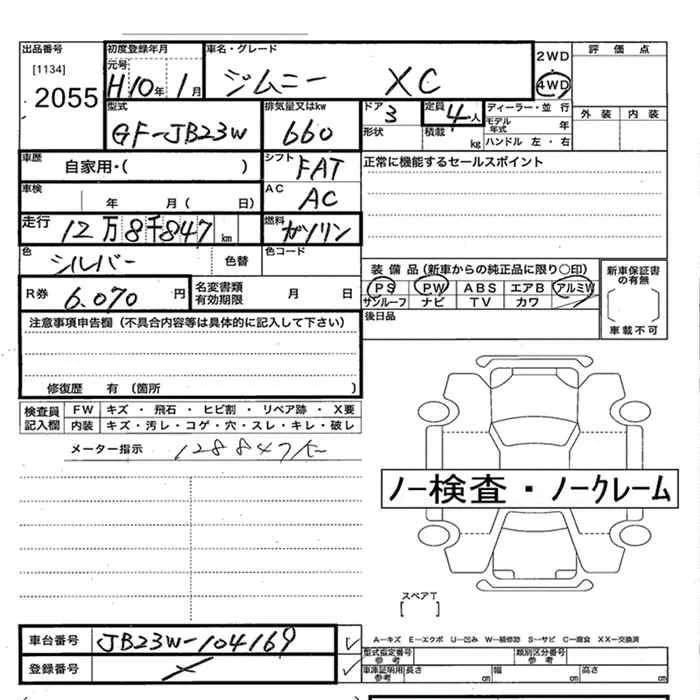 出品番号 初度登録年月 車名・グレード 2WD 評価点
[1134] 元号 H10年1月 ジムニー XC 4WD
2055 外装 内装
型式 排気量又はkw ドア 3 定員 4人 ディーラー・並行
GF-JB23W 660 形状 積載 kg モデル年式 年
ハンドル 左・右
車歴 自家用・( ) シフト FAT 正常に機能するセールスポイント
車検 年 月( 日) AC AC
走行 12万8千847km 燃料 ガソリン
色 シルバー 色替 色コード
装備品(新車からの純正品に限り○印) 新車保証書の有無
R券 6.070円 名変書類有効期限 月 日 PS PW ABS エアB アルミW
サンルーフ ナビ TV カワ
後日品 車載不可
注意事項申告欄(不具合内容等は具体的に記入して下さい)
修復歴 有(箇所 )
検査員 FW キズ・飛石・ヒビ割・リペア跡・X要
記入欄 内装 キズ・汚レ・コゲ・穴・スレ・キレ・破レ
メーター指示 128847K
ノー検査・ノークレーム
スペアT
[ ]
車台番号 JB23W-104169
A−キズ E−エクボ U−凹み W−補修跡 S−サビ C−腐食 XX−交換済
登録番号
型式指定番号 参考 類別区分番号 参考
車庫証明用 参考 長さ cm 幅 cm 高さ cm